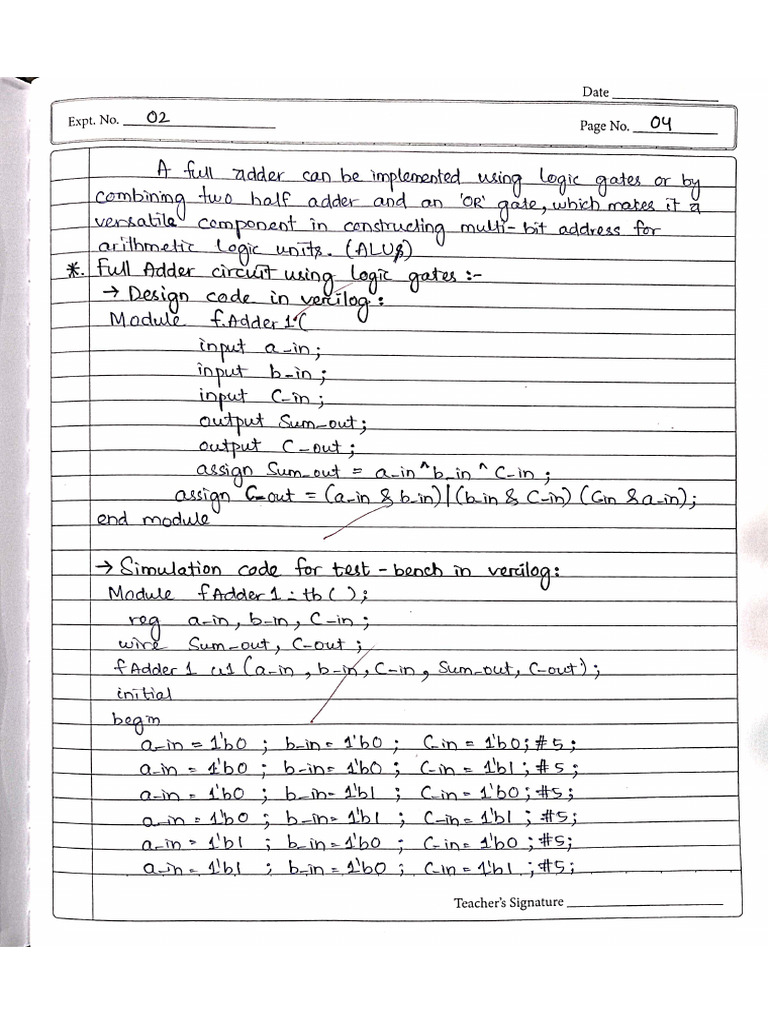 Date
Expt. No. 02
Page No. 04
A full adder can be implemented using logic gates or by
combining two half adder and an 'OR' gate, which makes it a
versatile component in constructing multi-bit address for
arithmetic logic units. (ALUs)
*. Full Adder circuit using logic gates :-
→ Design code in verilog :
Module fAdder1 (
input a_in ;
input b_in ;
input C_in ;
output Sum_out ;
output C_out ;
assign Sum_out = a_in ^ b_in ^ C_in ;
assign C_out = (a_in & b_in) | (b_in & C_in) (Cin & a_in) ;
end module
→ Simulation code for test-bench in verilog :
Module fAdder1 : tb ( ) ;
reg a_in, b_in, C_in ;
wire Sum_out, C_out ;
fAdder1 u1 (a_in , b_in, C_in , Sum_out, C_out) ;
initial
begin
a_in = 1'b0 ; b_in = 1'b0 ; C_in = 1'b0; #5 ;
a_in = 1'b0 ; b_in = 1'b0 ; C_in = 1'b1 ; #5 ;
a_in = 1'b0 ; b_in = 1'b1 ; C_in = 1'b0 ; #5 ;
a_in = 1'b0 ; b_in = 1'b1 ; C_in = 1'b1 ; #5 ;
a_in = 1'b1 ; b_in = 1'b0 ; C_in = 1'b0 ; #5 ;
a_in = 1'b1 ; b_in = 1'b0 ; C_in = 1'b1 ; #5 ;
Teacher's Signature